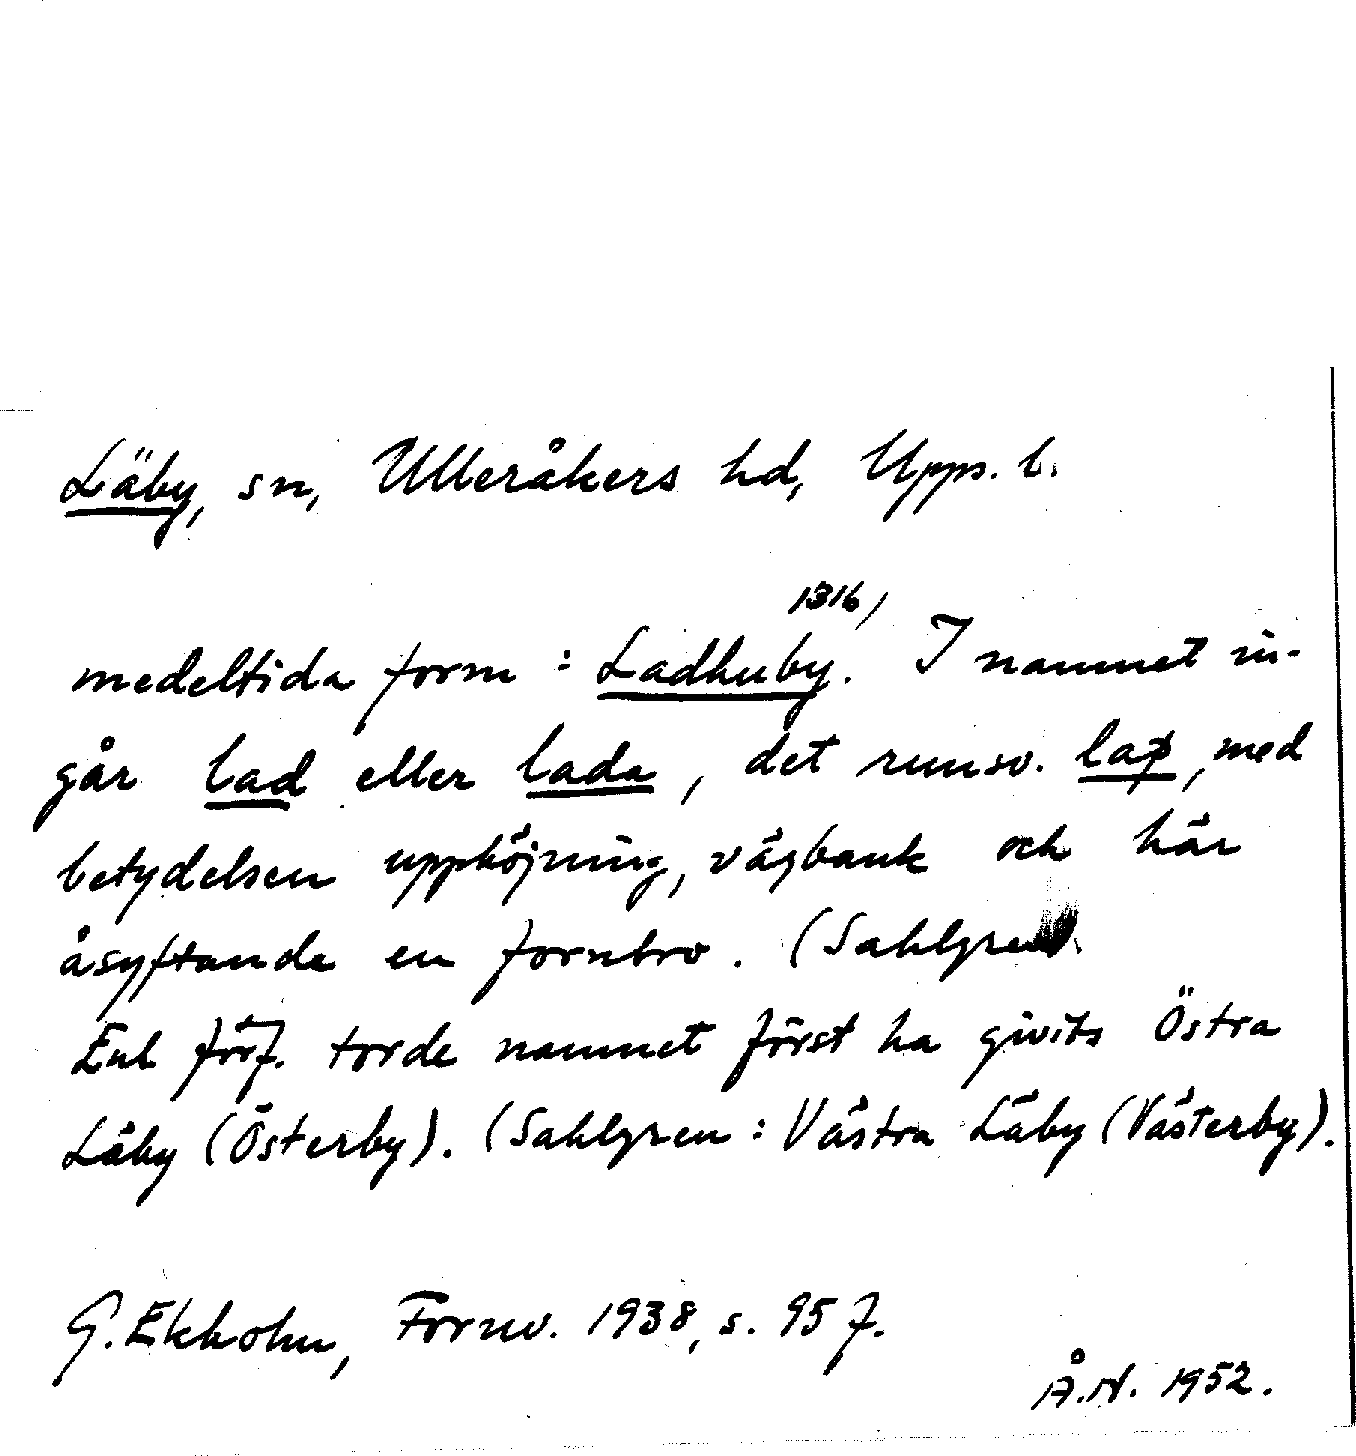 Läby, sn, Ulleråkers hd, Upps. l.
1316/
medeltida form : Ladhuby. I namnet in-
går lad eller lada, det runsv. laþ, med
betydelsen upphöjning, vägbank och här
åsyftande en fornbro. (Sahlgren).
Enl förf. torde namnet först ha givits Östra
Läby (Österby). (Sahlgren : Västra Läby (Västerby).
G. Ekholm, Fornv. 1938, s. 95 f.
Å.N. 1952.